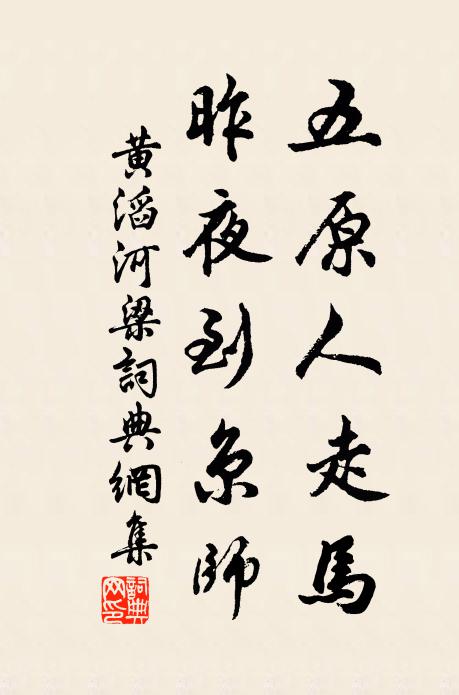 五原人走馬
昨夜到京師
黃滔河梁詞典網集
詞典网印